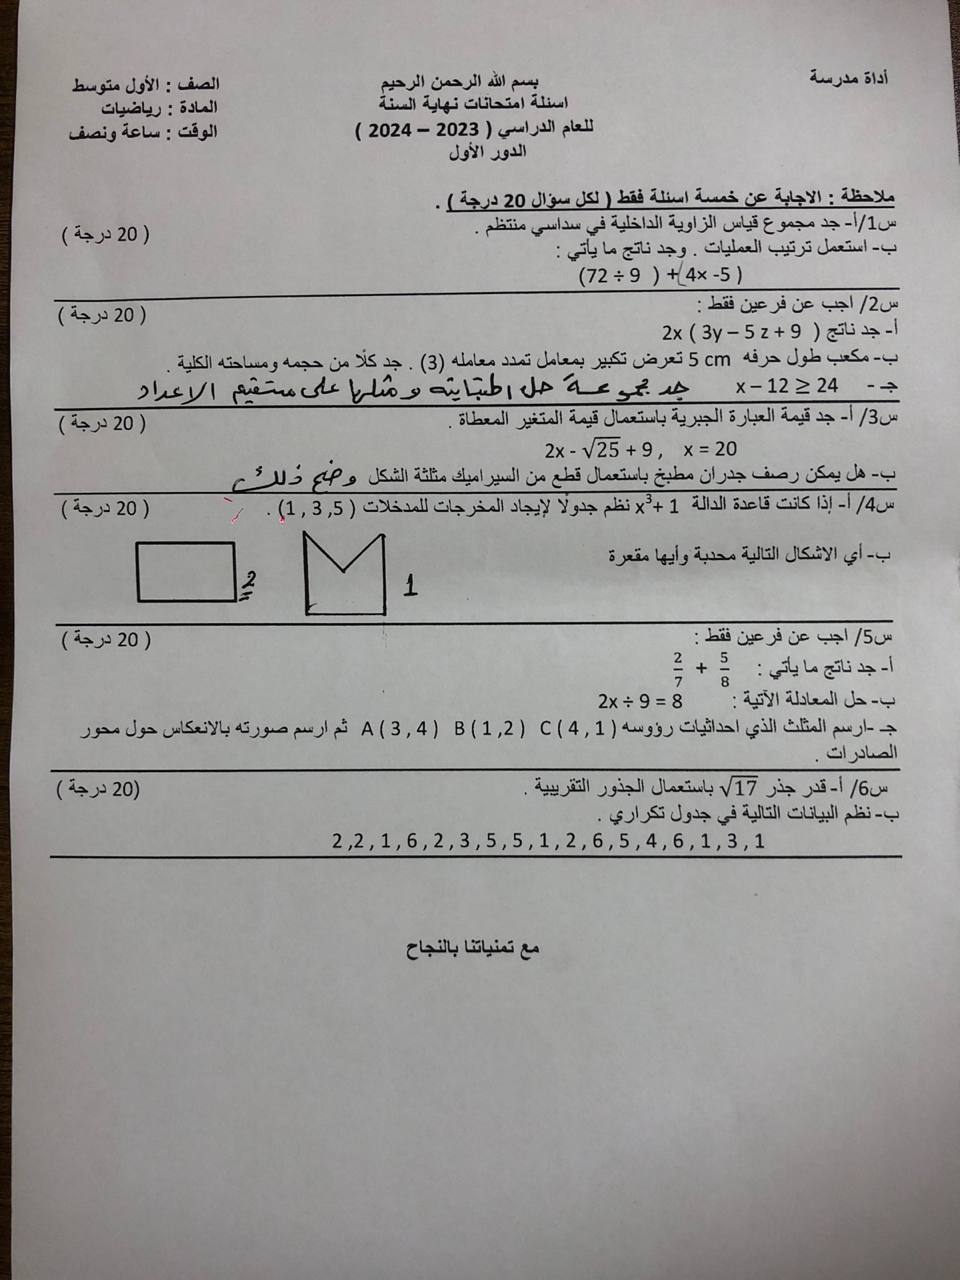 أداة مدرسة
بسم الله الرحمن الرحيم
الصف : الأول متوسط
اسئلة امتحانات نهاية السنة
المادة : رياضيات
للعام الدراسي ( 2023 – 2024 )
الوقت : ساعة ونصف
الدور الأول
ملاحظة : الاجابة عن خمسة اسئلة فقط ( لكل سؤال 20 درجة ) .
س1/أ- جد مجموع قياس الزاوية الداخلية في سداسي منتظم . ( 20 درجة )
ب- استعمل ترتيب العمليات . وجد ناتج ما يأتي :
(72 ÷ 9 ) + (4× -5 )
س2/ اجب عن فرعين فقط : ( 20 درجة )
أ- جد ناتج 2x ( 3y – 5 z + 9 )
ب- مكعب طول حرفه 5 cm تعرض تكبير بمعامل تمدد معامله (3) . جد كلًا من حجمه ومساحته الكلية .
جـ - x – 12 ≥ 24 جد مجموعة حل المتباينة ومثلها على مستقيم الاعداد
س3/ أ- جد قيمة العبارة الجبرية باستعمال قيمة المتغير المعطاة . ( 20 درجة )
2x - √25 + 9 , x = 20
ب- هل يمكن رصف جدران مطبخ باستعمال قطع من السيراميك مثلثة الشكل وضح ذلك
س4/ أ- إذا كانت قاعدة الدالة x³+ 1 نظم جدولًا لإيجاد المخرجات للمدخلات ( 1 , 3 ,5 ) . ( 20 درجة )
ب- أي الاشكال التالية محدبة وأيها مقعرة
1
2
س5/ اجب عن فرعين فقط : ( 20 درجة )
أ- جد ناتج ما يأتي : 2/7 + 5/8
ب- حل المعادلة الآتية : 2x ÷ 9 = 8
جـ -ارسم المثلث الذي احداثيات رؤوسه A ( 3 , 4 ) B ( 1 ,2 ) C ( 4 , 1 ) ثم ارسم صورته بالانعكاس حول محور
الصادرات .
س6/ أ- قدر جذر √17 باستعمال الجذور التقريبية . (20 درجة )
ب- نظم البيانات التالية في جدول تكراري .
2 ,2 , 1 , 6 , 2 , 3 , 5 , 5 , 1 , 2 , 6 , 5 , 4 , 6 , 1 , 3 , 1
مع تمنياتنا بالنجاح